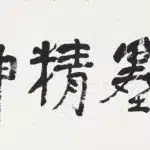 墨精神